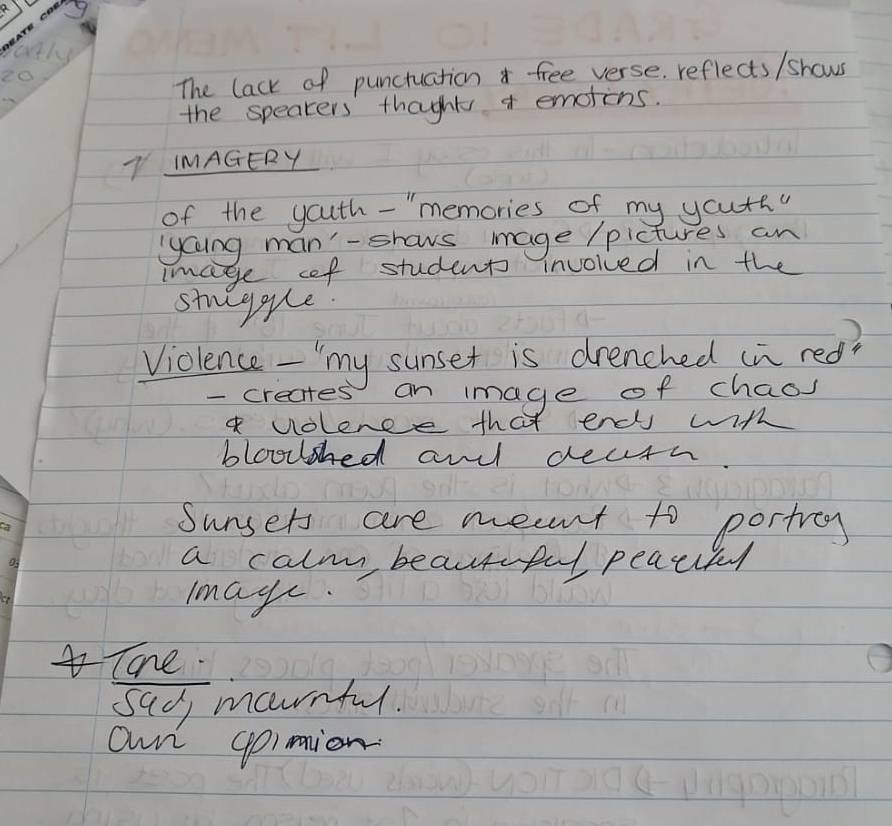 The lack of punctuation & free verse. reflects/shows
the speakers thoughts & emotions.
IMAGERY
of the youth - "memories of my youth"
'young man' - shows image/pictures an
image of students involved in the
struggle.
Violence - "my sunset is drenched in red"
- creates an image of chaos
& violence that ends with
bloodshed and death.
Sunsets are meant to portray
a calm, beautiful, peaceful
image.
* Tone.
Sad, mournful.
Own opinion.